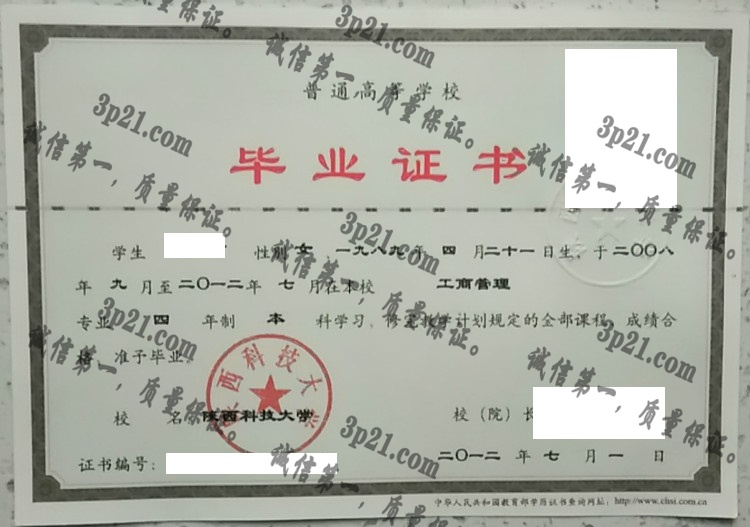 普通高等学校
毕业证书
学生 性别 女 一九八九年 四 月二十一日生、于二〇〇八
年 九 月至二〇一二年 七 月在本校 工商管理
专业 四 年制 本 科学习、修完教学计划规定的全部课程、成绩合
格、准予毕业。
陕西科技大学
校 名 陕西科技大学 校(院)长
证书编号: 二〇一二 年 七 月 一 日
中华人民共和国教育部学历证书查询网址:http://www.chsi.com.cn
3p21.com
诚信第一,质量保证。
3p21.com
诚信第一,质量保证。
3p21.com
诚信第一,质量保证。
3p21.com
诚信第一,质量保证。
3p21.com
诚信第一,质量保证。
3p21.com
诚信第一,质量保证。
3p21.com
诚信第一,质量保证。